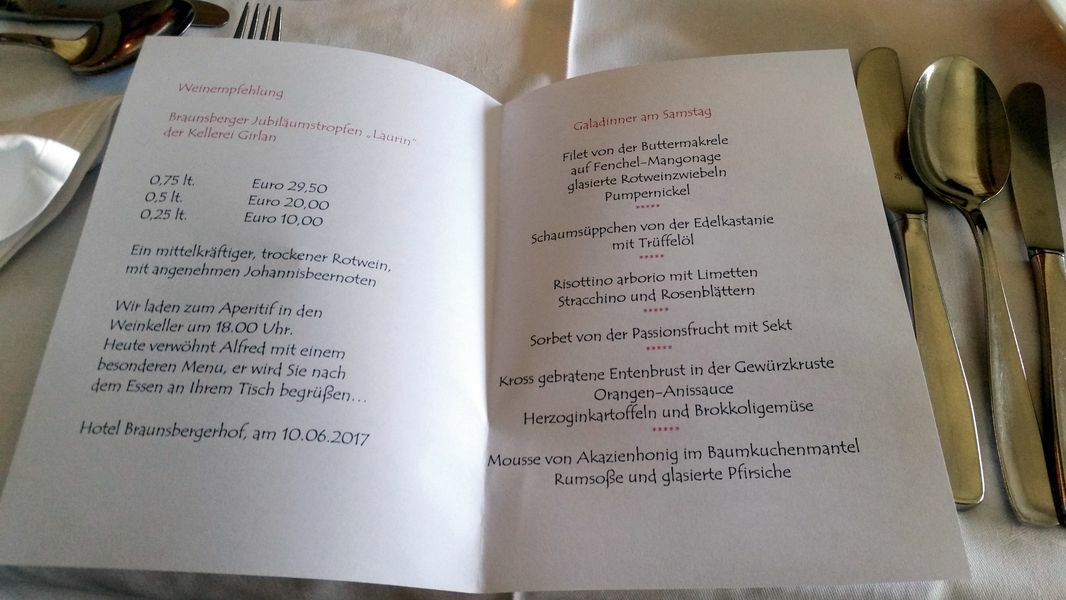 Weinempfehlung
Braunsberger Jubiläumstropfen „Laurin“
der Kellerei Girlan
0,75 lt. Euro 29,50
0,5 lt. Euro 20,00
0,25 lt. Euro 10,00
Ein mittelkräftiger, trockener Rotwein,
mit angenehmen Johannisbeernoten
Wir laden zum Aperitif in den
Weinkeller um 18.00 Uhr.
Heute verwöhnt Alfred mit einem
besonderen Menu, er wird Sie nach
dem Essen an Ihrem Tisch begrüßen...
Hotel Braunsbergerhof, am 10.06.2017
Galadinner am Samstag
Filet von der Buttermakrele
auf Fenchel-Mangonage
glasierte Rotweinzwiebeln
Pumpernickel
*****
Schaumsüppchen von der Edelkastanie
mit Trüffelöl
*****
Risottino arborio mit Limetten
Stracchino und Rosenblättern
*****
Sorbet von der Passionsfrucht mit Sekt
*****
Kross gebratene Entenbrust in der Gewürzkruste
Orangen-Anissauce
Herzoginkartoffeln und Brokkoligemüse
*****
Mousse von Akazienhonig im Baumkuchenmantel
Rumsoße und glasierte Pfirsiche